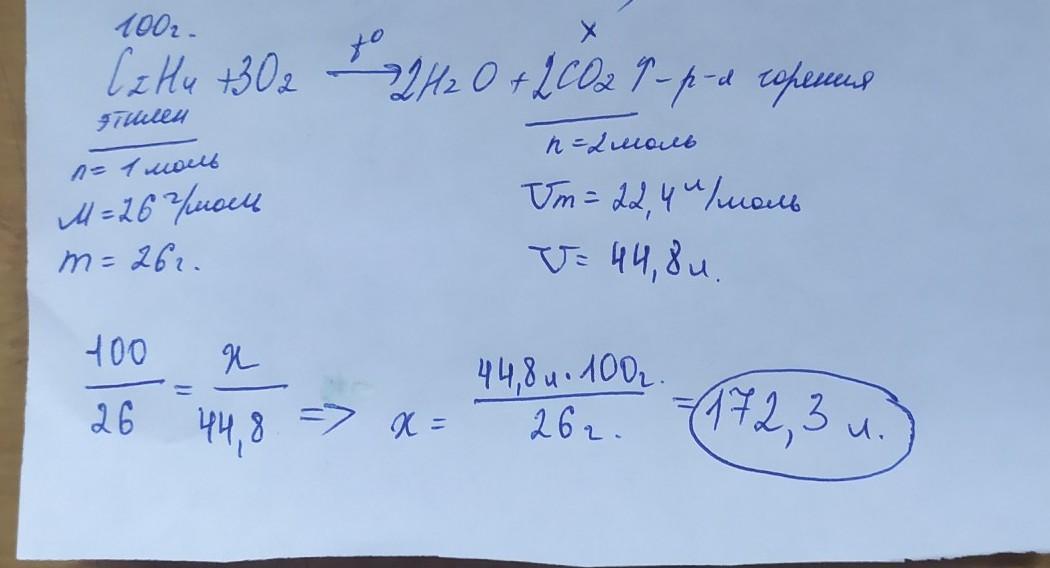 100г.
t° x
C₂H₄ + 3O₂ → 2H₂O + 2CO₂ ↑ - р-я горения
этилен
n = 1 моль n = 2 моль
M = 26 г/моль Vm = 22,4 л/моль
m = 26 г. V = 44,8 л.
100/26 = x/44,8 => x = 44,8 л · 100 г. / 26 г. = 172,3 л.